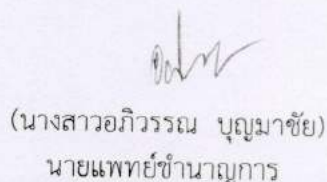 (นางสาวอภิวรรณ บุญมาชัย)
นายแพทย์ชำนาญการ